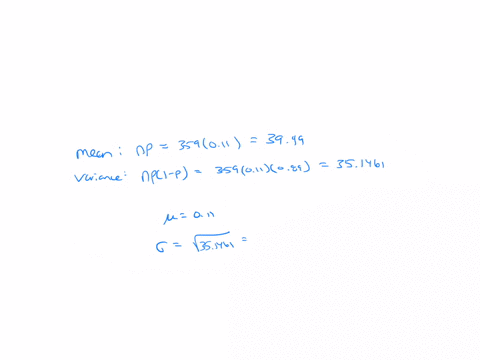 mean: np = 359(0.11) = 39.49
variance: np(1-p) = 359(0.11)(0.89) = 35.1461
μ = 0.11
σ = √35.1461 =